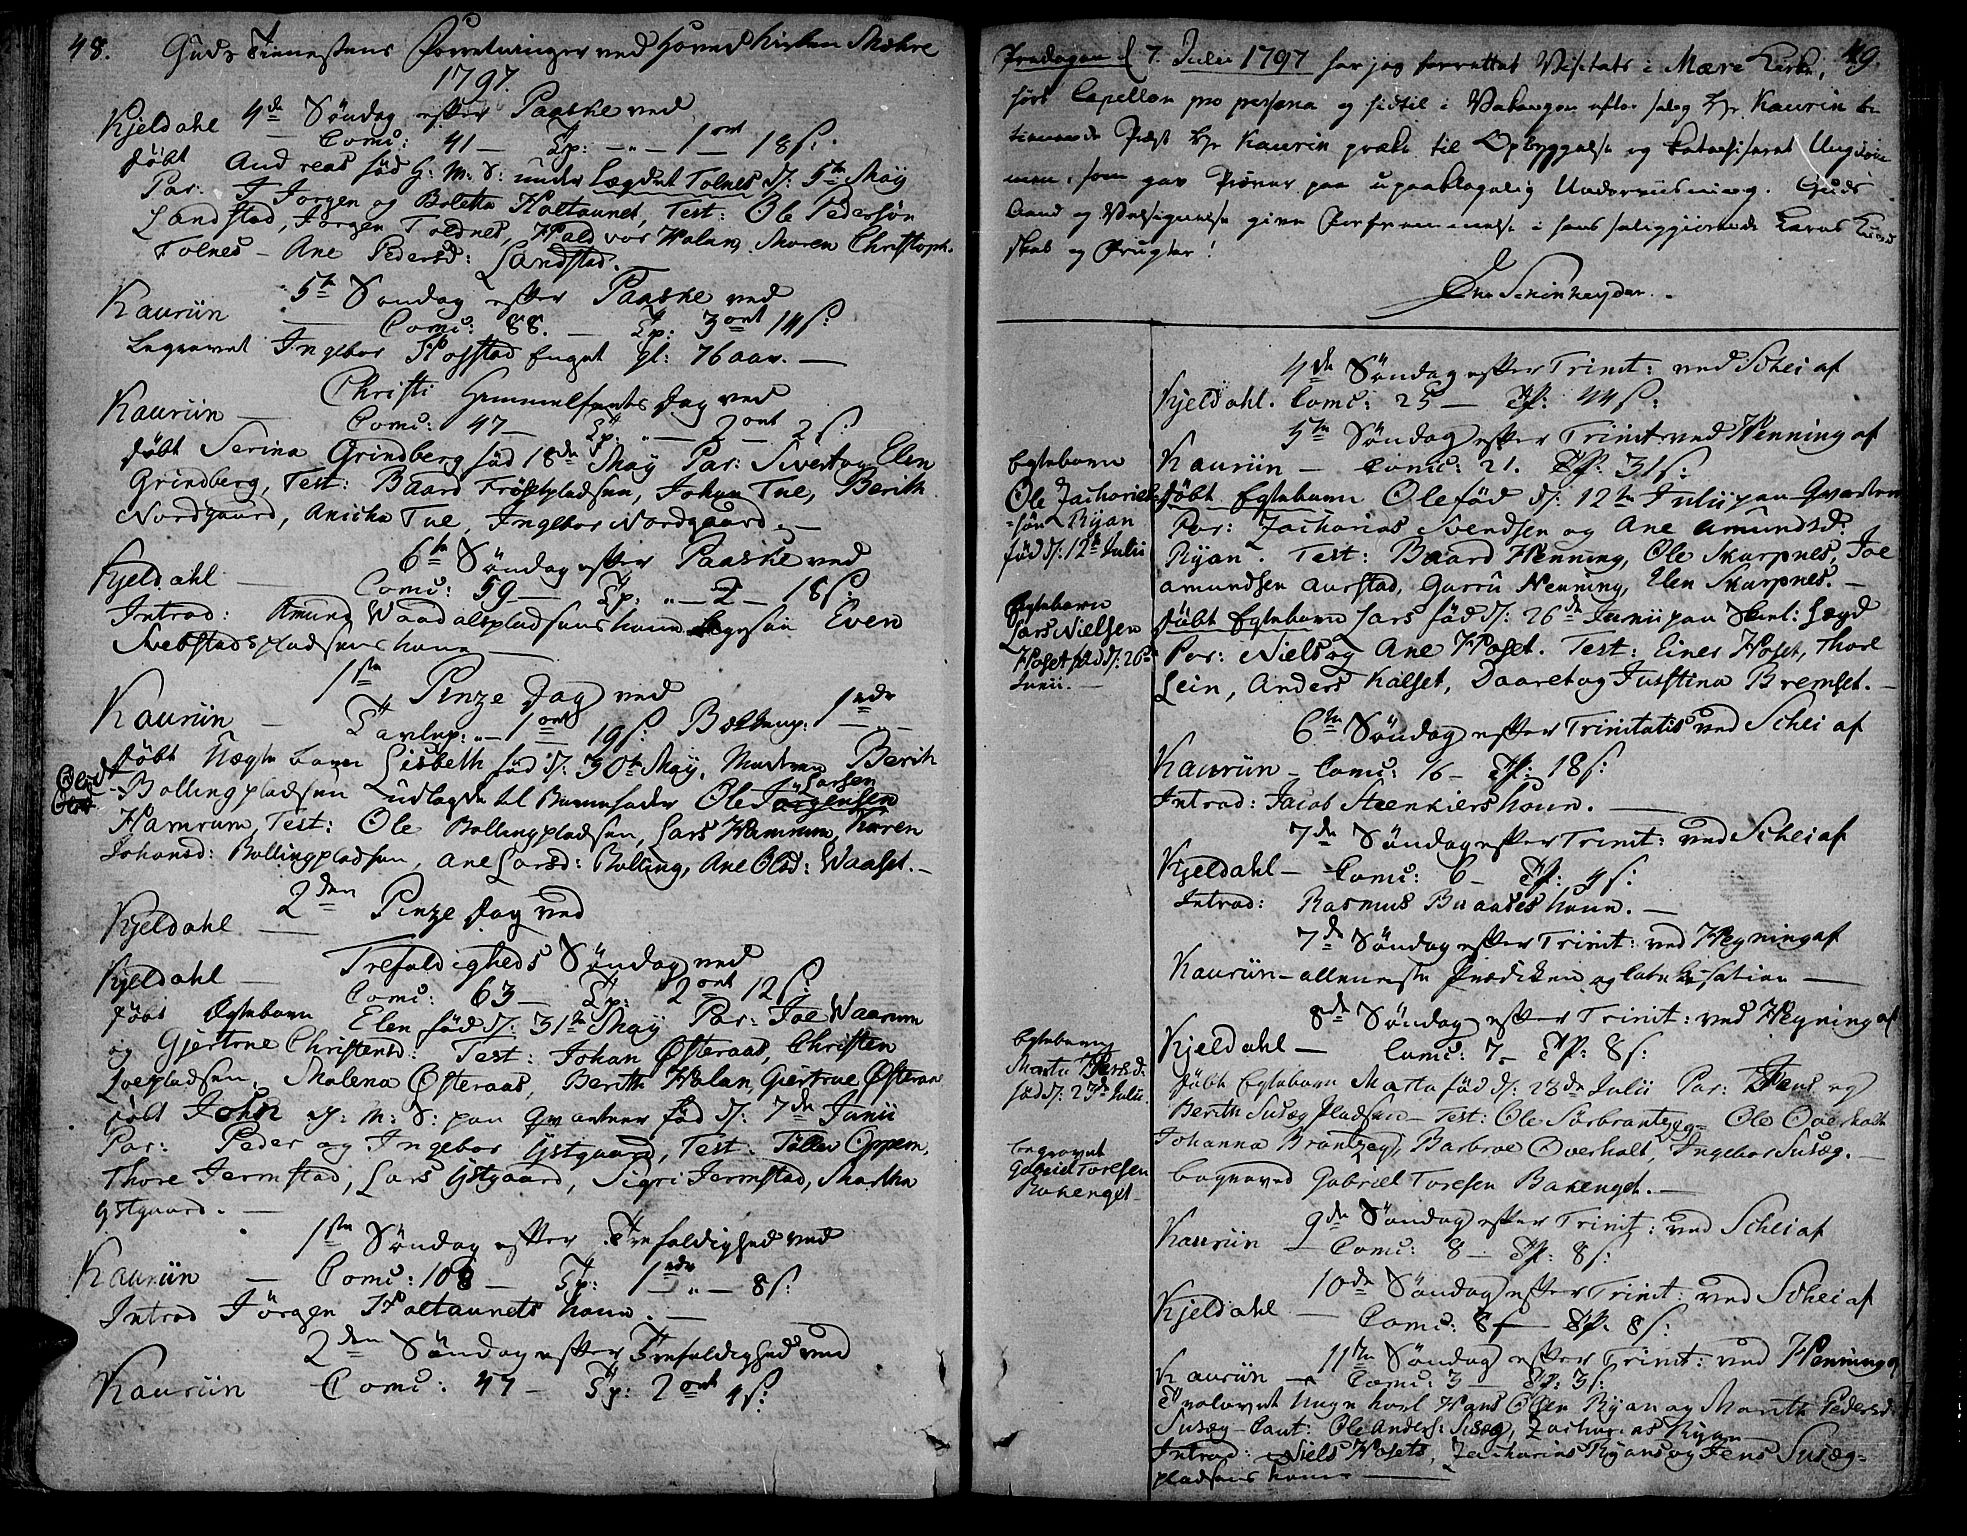 48. Guds Tienestens Forretninger ved Hoved Kirken Mæhre
1797.
4de Søndag efter Paaske ved
Kjeldahl Comu: 41 — Tp: „ — 1 ort 18 s:
døbt Andreas fød G: M: S: under Lægdet Tolnes d: 5te Maÿ
Par: Jørgen og Boletta Holtaunet, Test: Ole Pedersøn
Landstad, Jørgen Toldnes, Hald vor Halan, Maren Christoph.
Tolnes — Ane Pedersd: Landstad.
5te Søndag efter Paaske ved
Kauriin Comu: 88. — Tp: 3 ort 14 s:
begravet Ingebor enget gl: 76 aar. —
Christi Himmelfarts Dag ved
Kauriin — Comu: 47 — Tp: „ — 2 ort 2 s:
døbt Serina Grindberg fød 18de Maÿ Par: Sivert og Elen
Grindberg, Test: Baard Frøsetpladsen, Johan Tue, Berith
Nordgaard, Anicha Tue, Ingebor Nordgaard. —
6te Søndag efter Paaske ved
Kjeldahl — Comu: 59 — Tp: „ — 2 — 18 s:
Introd: Amund Waadalspladsens kone Even
Svebstadspladsens kone —
1ste Pinze Dag ved
Kauriin — Tavlep: „ — 1 ort 19 s: 1
døbt Uægte barn Lisbeth fød d: 30te Maÿ, Moderen Berith
Bollingpladsen udlagde til Barnefader Ole Jørgensen Larsen
Hamrum, Test: Ole Bollingpladsen, Lars Hamrum, Karen
Johansd: Bollingpladsen, Ane Larsd: Bolling, Ane Olsd: Waalset. —
2den Pinze Dag ved
Kjeldahl —
Trefoldigheds Søndag ved
Kjeldahl — Comu: 63 — Tp: 2 ort 12 s:
døbt Ægtebarn Elen fød d: 31te Maÿ Par: Joe Waarum
og Gjertrue Christensd: Test: Johan Østeraas, Christen
Loepladsen, Malena Østeraas, Berith Halan, Giertrue Østeraas
døbt John G: M: S: paa Qvartner fød d: 7de Junii
Par: Peder og Ingebor Ÿstgaard, Test: Tølløv Oppem,
Thore Jermstad, Lars Ÿstgaard, Sigri Jermstad, Martha
Ÿstgaard. —
1ste Søndag efter Trefoldighed ved
Kauriin — Comu: 108 — Tp: 1 „ — 8 s:
Introd Jørgen Holtaunets kone. —
2den Søndag efter Trefoldighed ved
Kauriin Comu: 47 — Tp: 2 ort 4 s:
49.
Fredagen d 7. Julii 1797 har jeg forrettet Visitats i Mære Kirke,
hørt Capellan pro persona og hidtil i Vakangen efter salig Hr. Kaurin be
tienende Præst Hr Kaurin præke til Opbyggelse og Catechiseret Ungdom
men, som gav Prøver paa upaaklagelig Underviisning. Guds
Aand og Velsignelse give Forfremmelse i hans saliggiørende Læres Kund
skab og Frugter!
Schönheyder.
4de Søndag efter Trinit: ved Schei af
Kjeldahl. Comu: 25 — Tp: 44 s:
5te Søndag efter Trinit: ved Henning af
Kauriin — Comu: 21. Tp: 31 s:
Egtebarn
Ole Zacharia-
søn Ryan
fød d: 12te Julii
døbt Egtebarn Ole fød d: 12te Julii paa Qvarten
Par: Zacharias Svendsen og Ane Amundsd:
Ryan Test: Baard Henning, Ole Skarpnes, Joe
Amundsen Aurstad, Gurru Henning, Elen Skarpnes. —
Egtebarn
Lars Nielsen
Hoset fød d: 26de
Junii. —
døbt Egtebarn Lars fød d: 26de Junii paa Skarl: Lægd
Par: Niels og Ane Hoset. Test: Einer Hoset, Thore
Lein, Anders Kalset, Daaret og Justina Bremset. —
6te Søndag efter Trinitatis ved Schei af
Kauriin — Comu: 16 — Tp: 18 s:
Introd: Jacob Steenkiers kone. —
7de Søndag efter Trinit: ved Schei af
Kjeldahl — Comu: 6 — Tp: 4 s:
Introd: Rasmus Buaases kone. —
7de Søndag efter Trinit: ved Hegning af
Kauriin — alleneste Prædiken og Catechisation —
8de Søndag efter Trinit: ved Hegning af
Kjeldahl — Comu: 7 — Tp: 8 s:
Egtebarn
Marta Jensd:
fød d: 23de Julii.
døbt Egtebarn Marta fød d: 23de Julii Par: Jens og
Berith Susæg Pladsen — Test: Ole Sørbrantzeg — Ole Overholt
Johanna Brantzeg, Barbroe Overholt, Ingebor Susæg. —
begravet
Gabriel Toresen
Bakenget —
begraved Gabriel Toresen Bakenget. —
9de Søndag efter Trinit: ved Schei af
Kauriin — Comu: 8 — Tp: 8 s:
10de Søndag efter Trinit: ved Schei af
Kjeldahl — Comu: 8 — Tp: 8 s:
11te Søndag efter Trinit: ved Henning af
Kauriin — Comu: 3 — Tp: 3 s:
Trolovet Unge karl Hans Olsen Ryan og Marith Pedersd:
Susæg — Caut: Ole Anders: Susæg, Zacharias Ryan
Introd: Niels Hosets, Zacharias Ryans og Jens Susæg-
pladsens kone —